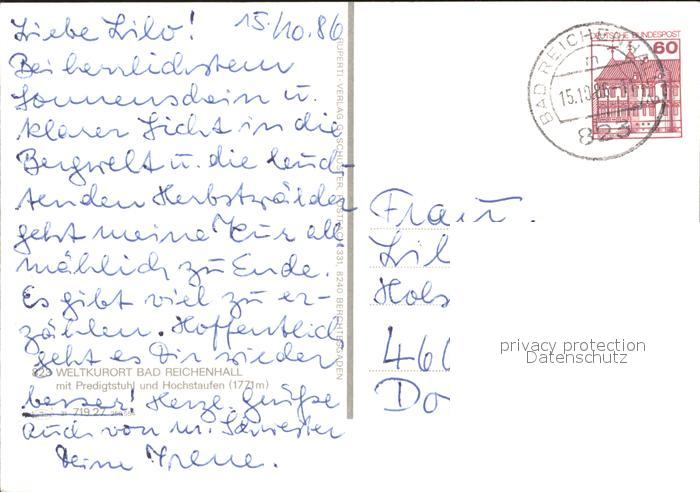 15./10.86
Liebe Lilo!
Bei herrlichstem
Sonnenschein u.
klarer Sicht in die
Bergwelt u. die leuch-
tenden Herbstwälder
geht meine Kur all
mählich zu Ende.
Es gibt viel zu er-
zählen. Hoffentlich
geht es Dir wieder
828 WELTKURORT BAD REICHENHALL
mit Predigtstuhl und Hochstaufen (1771m)
besser! Herzl. Grüße
719 27
Auch von m. Schwester
Deine Irene.
RUPERTI-VERLAG G. SCHUSTER, POSTFACH 331, 8240 BERCHTESGADEN
DEUTSCHE BUNDESPOST
60
BAD REICHENHALL
m
15.10.86
823
Frau
Lil
Hols
46
Do
privacy protection
Datenschutz